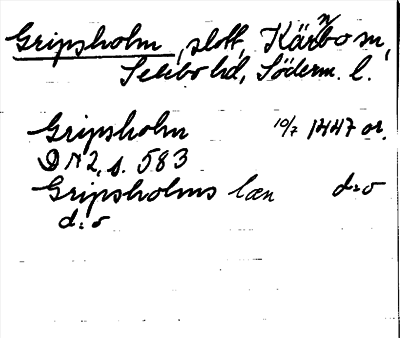 Gripsholm, slott, Kärnbo sn,
Selebo hd, Söderm. l.
Gripsholm 10/7 1447 or.
DN 2, s. 583
Gripsholms læn d:o
d:o